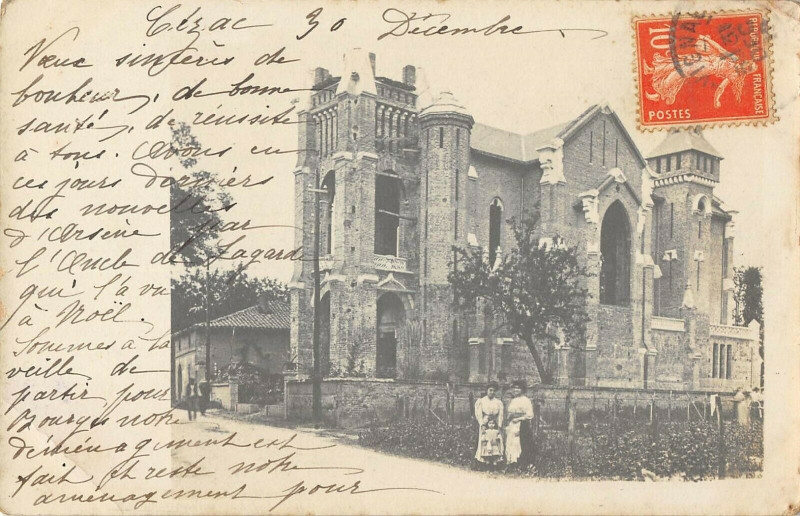 Cézac 30 Décembre
Vœux sincères de
bonheur, de bonne
santé, de réussite
à tous. Avons eu
ces jours derniers
des nouvelles
d'Arsène par
l'Oncle de Lagarde
qui l'a vu
à Noël.
Sommes à la
veille de
partir pour
Bourges notre
déménagement est
fait et reste notre
aménagement pour
10c
POSTES
REPUBLIQUE FRANÇAISE